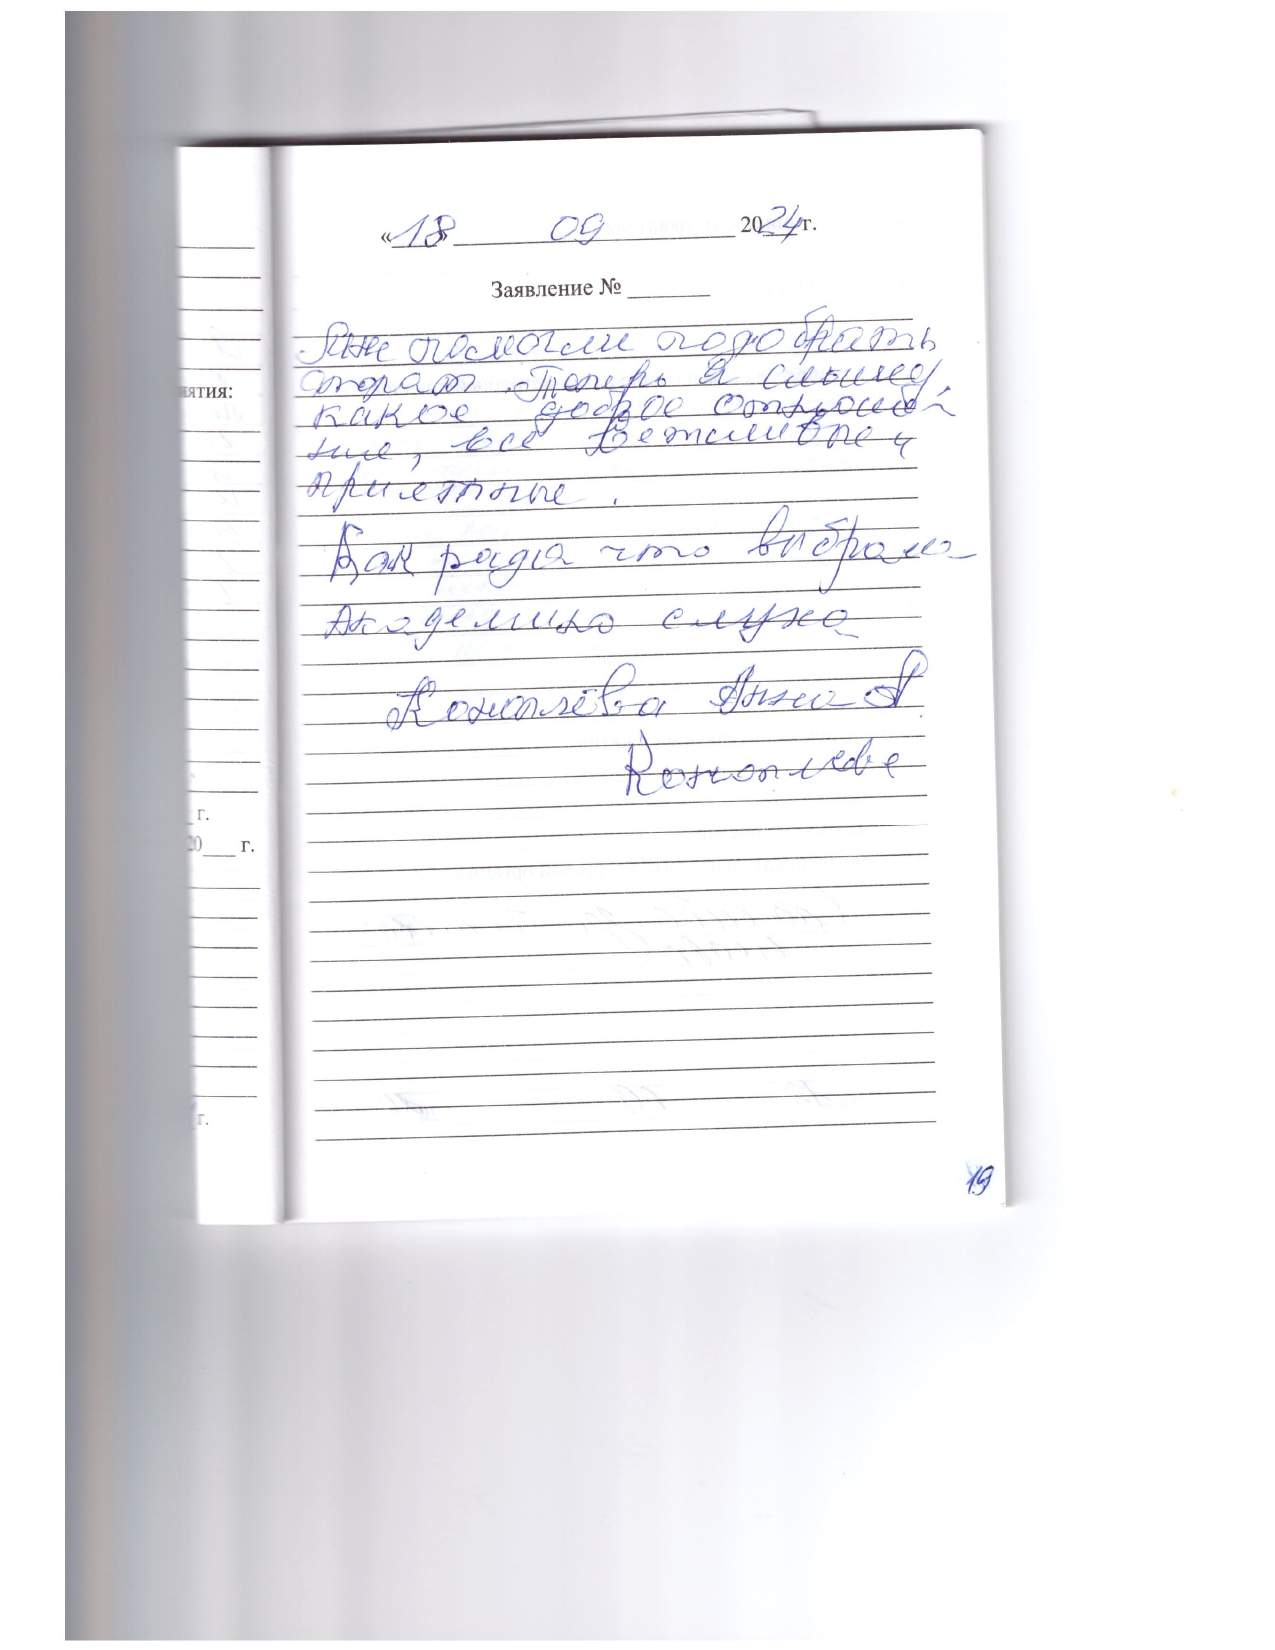 «18» 09 2024 г.
Заявление №
Мне помогли подобрать
апарат. Теперь я слышу,
какое доброе отноше-
ние, все вежливые и
приятные.
Как рада что выбрала
Академию слуха
Коноплёва Анна А
Коноплева
иятия:
г.
20 г.
г.
19